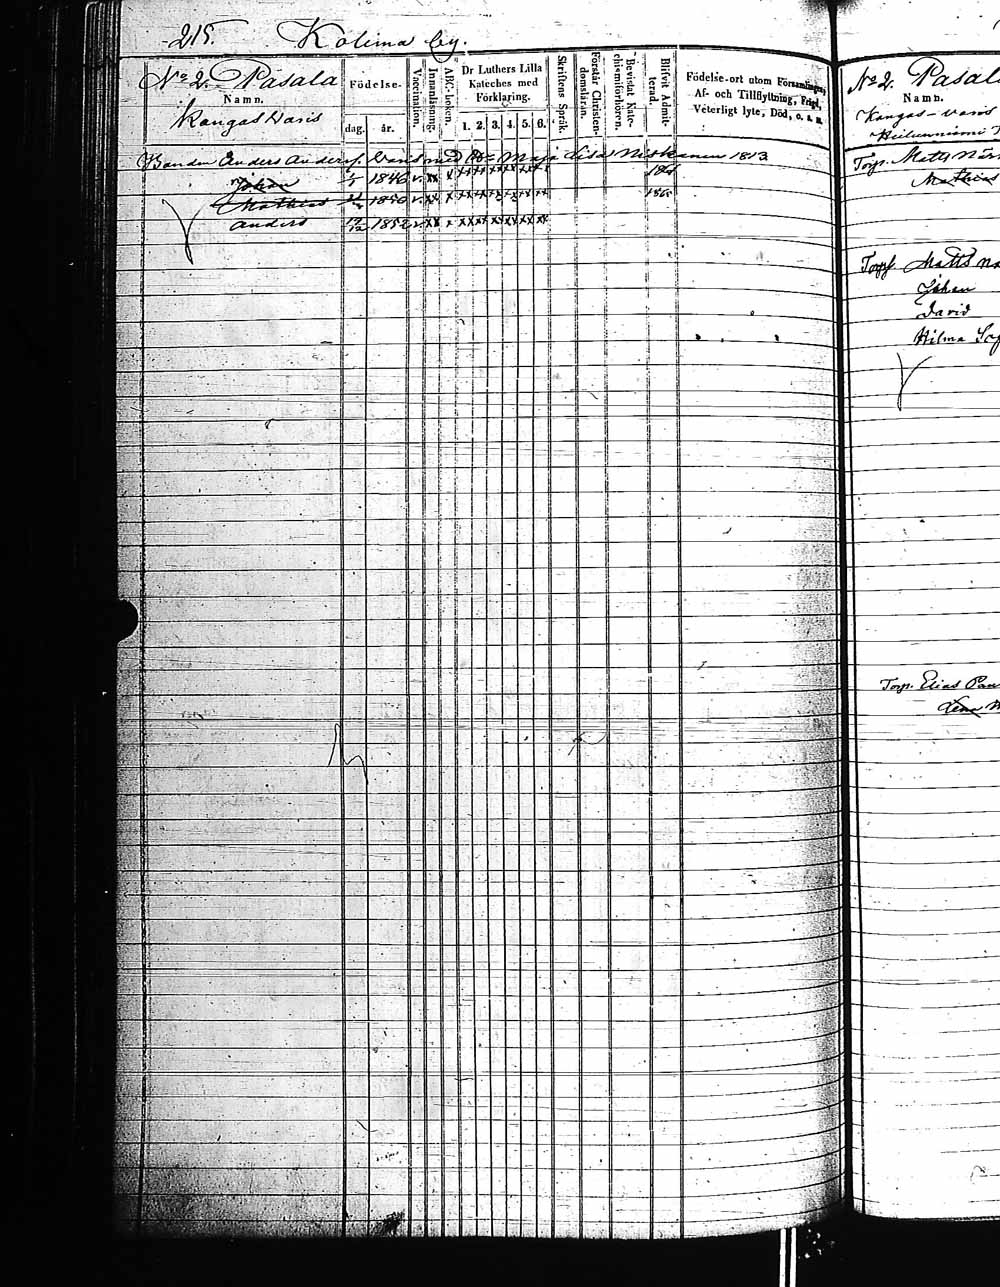 215. Kolima by.
No 2. Pasala
Namn.
Kangas Varis
Födelse-
dag. år.
Vaccination.
Innanläsning.
ABC-boken.
Dr Luthers Lilla
Kateches med
Förklaring.
1. 2. 3. 4. 5. 6.
Skriftens Språk.
Förstår Christen-
domsläran.
Bevistat Kate-
chismiförhören.
Blifvit Admit-
terad.
Födelse-ort utom Församlingen,
Af- och Tillflyttning, Frigd,
Véterligt lyte, Död, o. s. v.
Bonden Anders Maja Lisa Niskanen 1813
Johan 1846 v. xx x xx xx xx xx xx xx
Mathias 1850 v. xx x xx xx xx xx xx xx
Anders 1852 v. xx x xx xx xx xx xx xx
No 2. Pasal
Namn.
Kangas-varis
Torp. Matts
Mathias
Torpf. Matts
Johan
David
Hilma Sof
Torp. Elias Pau
Lena